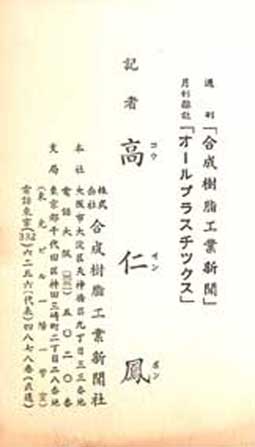 週刊「合成樹脂工業新聞」
月刊雑誌「オールプラスチックス」
記者 高仁鳳
コウ イン ボン
株式会社 合成樹脂工業新聞社
本社 大阪市大淀区天神橋筋九丁目三三番地
電話大阪 五〇二〇番
支局 東京都千代田区神田三崎町二丁目二八番地
電話東京(332)六二五六(代表)四八七八番(直通)